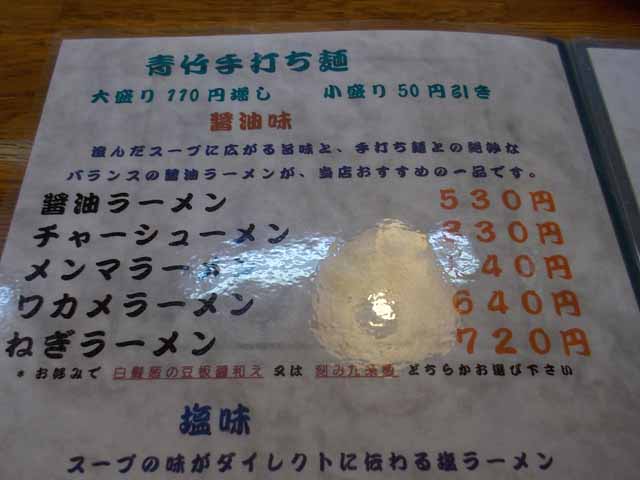 青竹手打ち麺
大盛り110円増し 小盛り50円引き
醤油味
澄んだスープに広がる旨味と、手打ち麺との絶妙な
バランスの醤油ラーメンが、当店おすすめの一品です。
醤油ラーメン 530円
チャーシューメン 30円
メンマラーメン 40円
ワカメラーメン 640円
ねぎラーメン 720円
*お好みで 白髪葱の豆板醤和え 又は 刻み九条葱 どちらかお選び下さい
塩味
スープの味がダイレクトに伝わる塩ラーメン